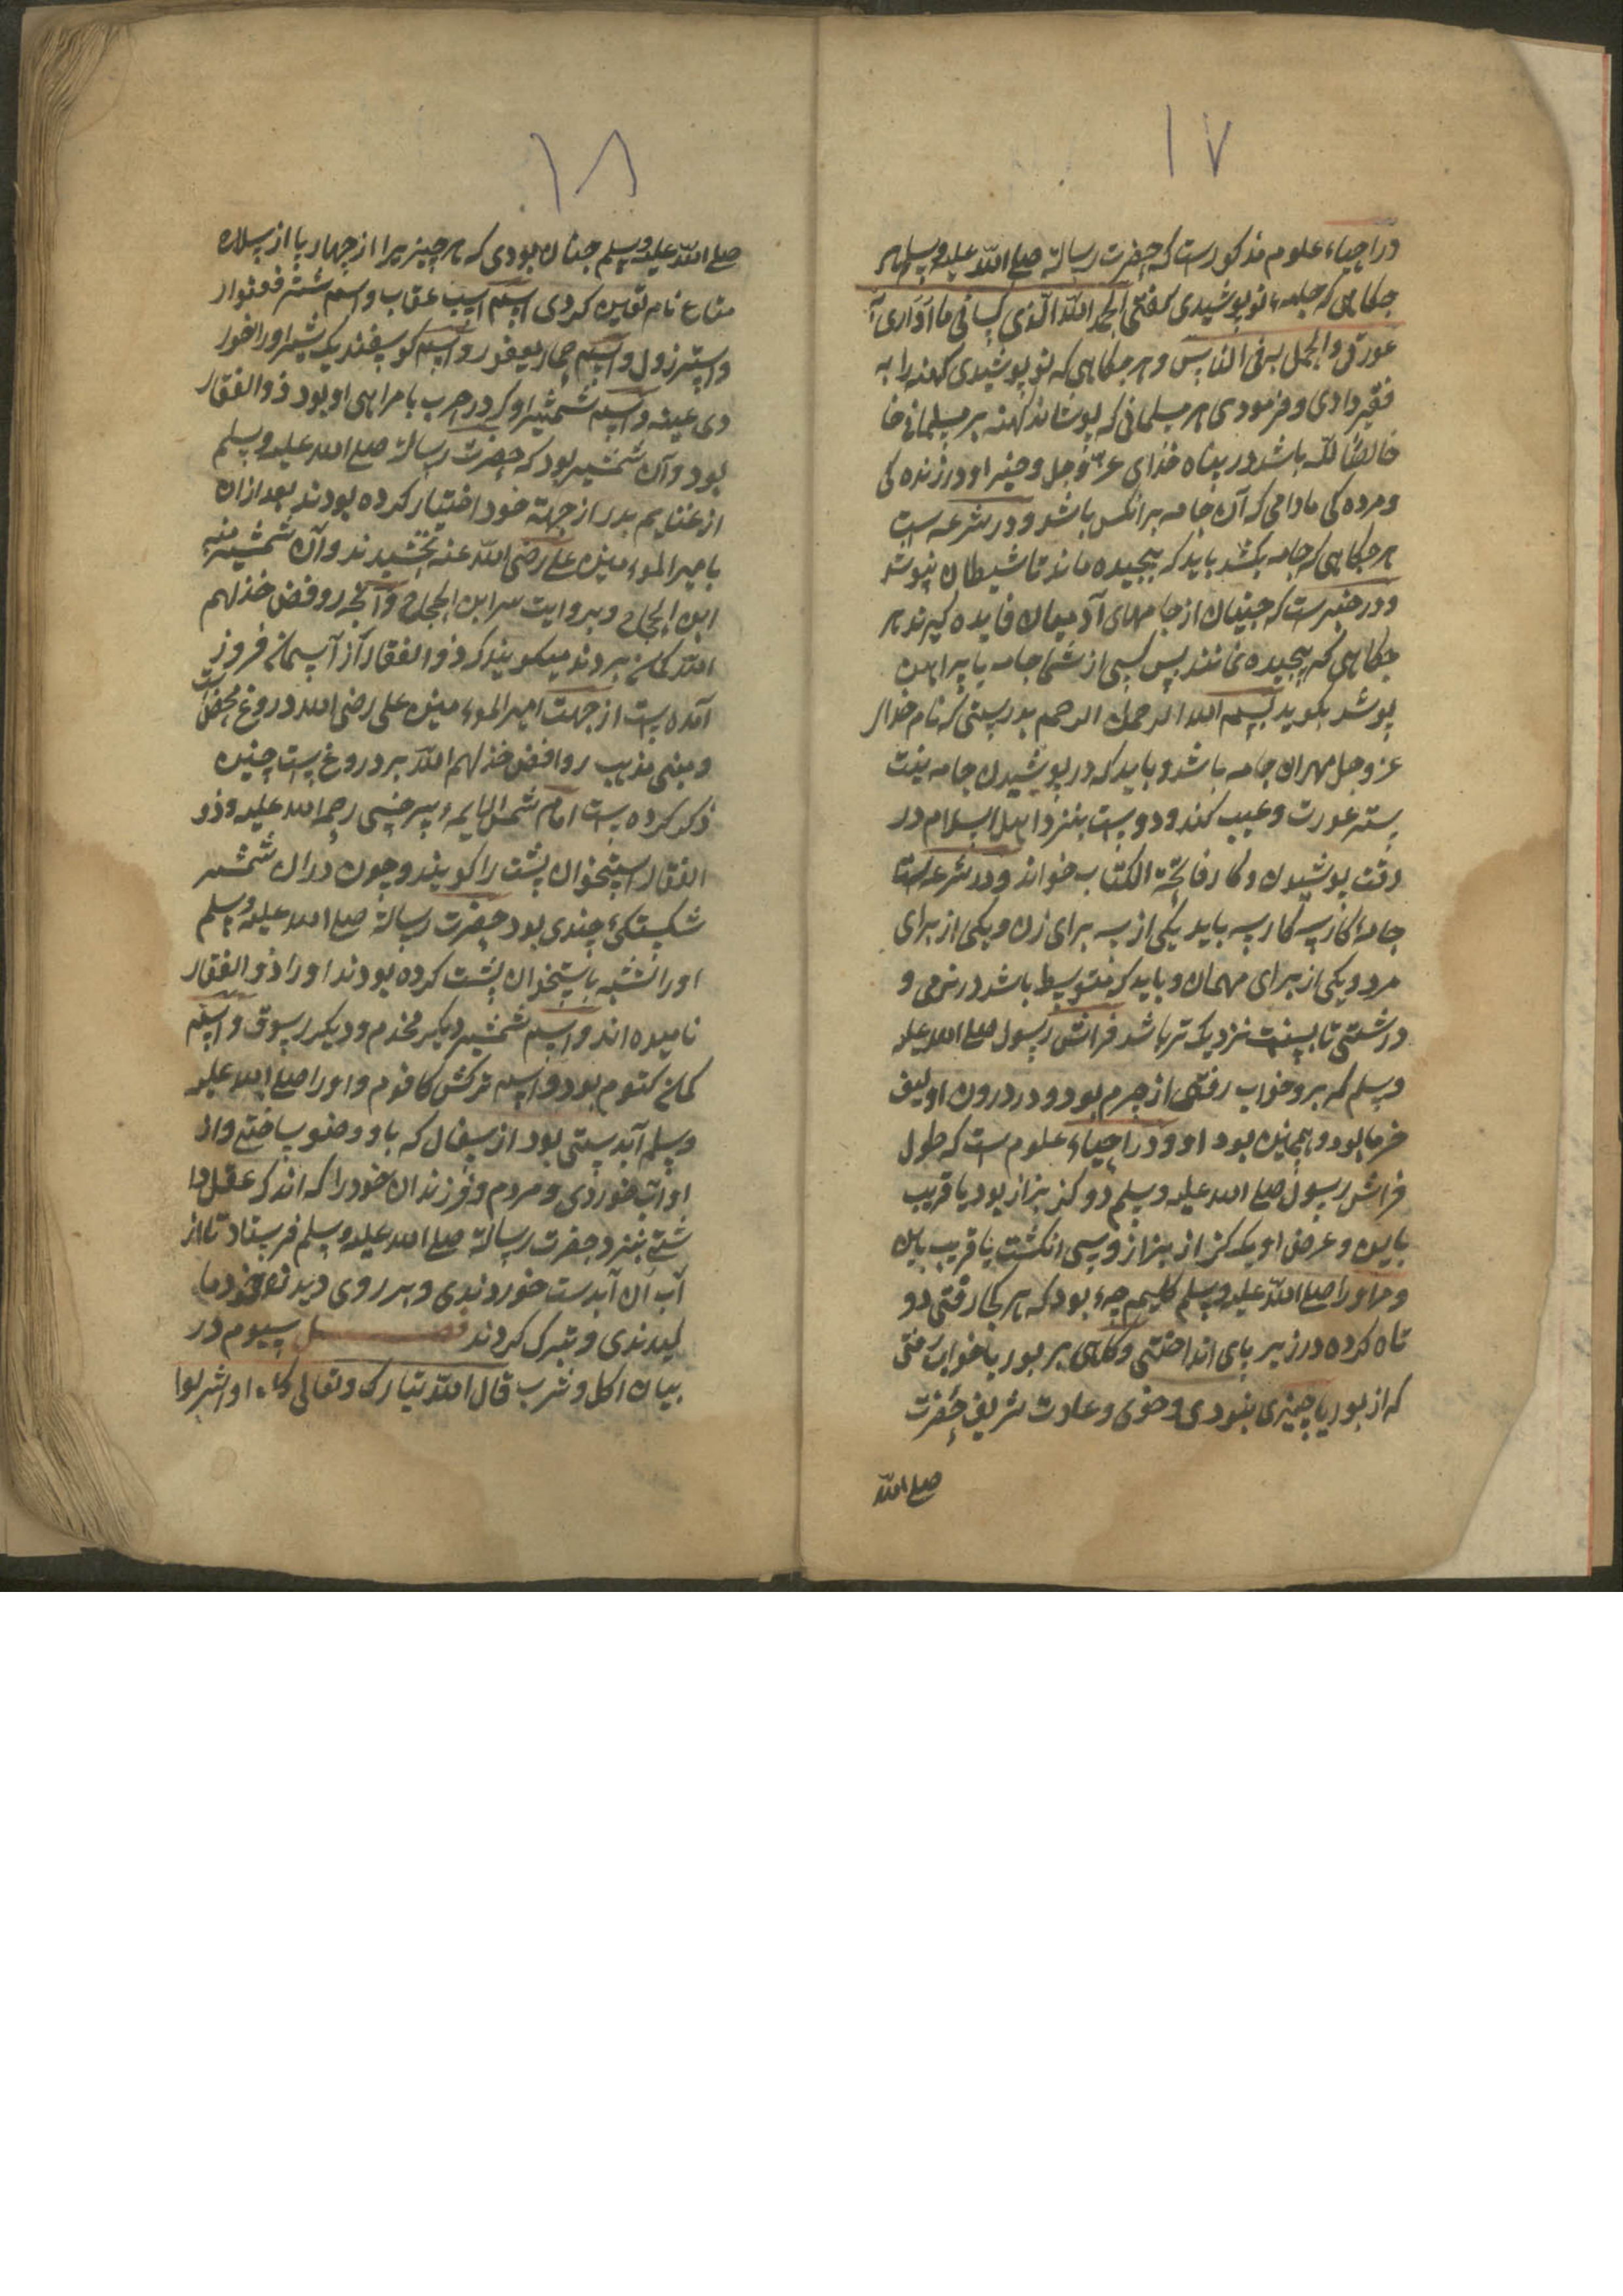 ١٧
در احیاء علوم مذکورست که حضرت رسالة صلے اللّه علیه وسلم هر
جکاهی که جامهء نو پوشیدی کفتی الحمد اللّه الّذی کسانی ما اواری
عورتی واتجمل به فی الناس و هر جکاهی که نو پوشیدی کهنه را به
فقیر دادی و فرمودی هر مسلمانی که پوشاند کهنه بر مسلمانی خا
خالصًا للّه باشد در پناه خدای عزّ وجل و خیر او در زنده کی
و مرده کی مادامی که آن جامه بر انکس باشد و در شرعه است
هر جکاهی که جامه بکشد باید که پیچیده ماند تا شیطان نپوشد
و در خبرست که جنیان از جامهای آدمیان فایده کیرند هر
جکاهی که پیچیده نمانند پس کسی از شما جامه یا پیراهن
پوشد بکوید بسم الله الرحمن الرحیم بدرستی که نام خدای
عز وجل مهران جامه باشد و باید که در پوشیدن جامه نیت
ستر عورت و عیب کند و دوست بنزد اهل اسلام در
وقت پوشیدن دکار فاتحة الکتاب خواند و در شرعه است
جامهٔ کار سه کار سه باید یکی از سه برای زن و یکی از برای
مرد و یکی از برای مهمان و باید که متوسط باشد در نرمی و
درشتی تا بسنت نزدیک تر باشد فراش رسول صلے الله علیه
وسلم که برو خواب رفتی از چرم بود و در درون او لیف
خرما بود و همچنین بود او و در احیاء علوم است که طول
فراش رسول صلے الله علیه وسلم دو کز بزاز بود یا قریب
باین و عرض او یک کز از بزاز و سی انکشت یا قریب باین
و مر او را صلے اللّه علیه وسلم کلیمچهء بود که هر کجا رفتی دو
تاه کرده در زیر پای انداختی و کاهی بر بوریا خواب رفتی
که از بوریا چیزی نبودی و خوی و عادت شریف حضرت
صلے اللّه
١٨
صلے اللّه علیه وسلم چنان بودی که هر چیز را از چهار پا از سلاح
متاع نام تعیین کردی اسم اسب عقاب و اسم شتر
و استر زول و اسم حمار یعفور و اسم کوسفند یک شیر او را خور
دی عینه و اسم شمشیر او که در حرب با مراهی او بود ذوالفقار
بود و آن شمشیر بود که حضرت رسالة صلے الله علیه وسلم
از غنایم بدر از جهة خود اختیار کرده بودند بعد ازان
بامیر المومنین علے رضی اللّه عنه بخشیدند و آن شمشیر منبه
ابن الحجاج و بروایت سر ابن الحجاج و آنچه روفض خذلهم
اللّه کمان بردند میکویند که ذوالفقار از آسمان فروز
آمده است از جهت امیر المومنین علی رضی الله دروغ محض است
و مبنی مذهب روافض خذلهم اللّه بر دروغ است چنین
ذکر کرده است امام شمس الایمهء سرخسی رحمه الله علیه و ذو
الفقار استخوان پشت را کویند و چون دران شمشیر
شکستکیء چندی بود حضرت رسالة صلے الله علیه وسلم
او را تشبیه باستخوان پشت کرده بودند او را ذوالفقار
نامیده اند و اسم شمشیر دیکر مخذم و دیکر رسوق و اسم
کمان کتوم بود و اسم ترکش کافوم و او را صلے الله علیه
وسلم آبدستی بود از سفال که باو وضو ساختے و از
او آب خوردی و مردم و فرزندان خود را که اندک عقل دا
شتے بنزد حضرت رسالة صلے الله علیه وسلم فرستاد تا از
آب ان آبدست خوردندی و بر روی و بدنهای خود ما
لیدندی و تبرک کردند فصل سیوم در
بیان اکل و شرب قال اللّه تبارک و تعالی کلوا واشربوا